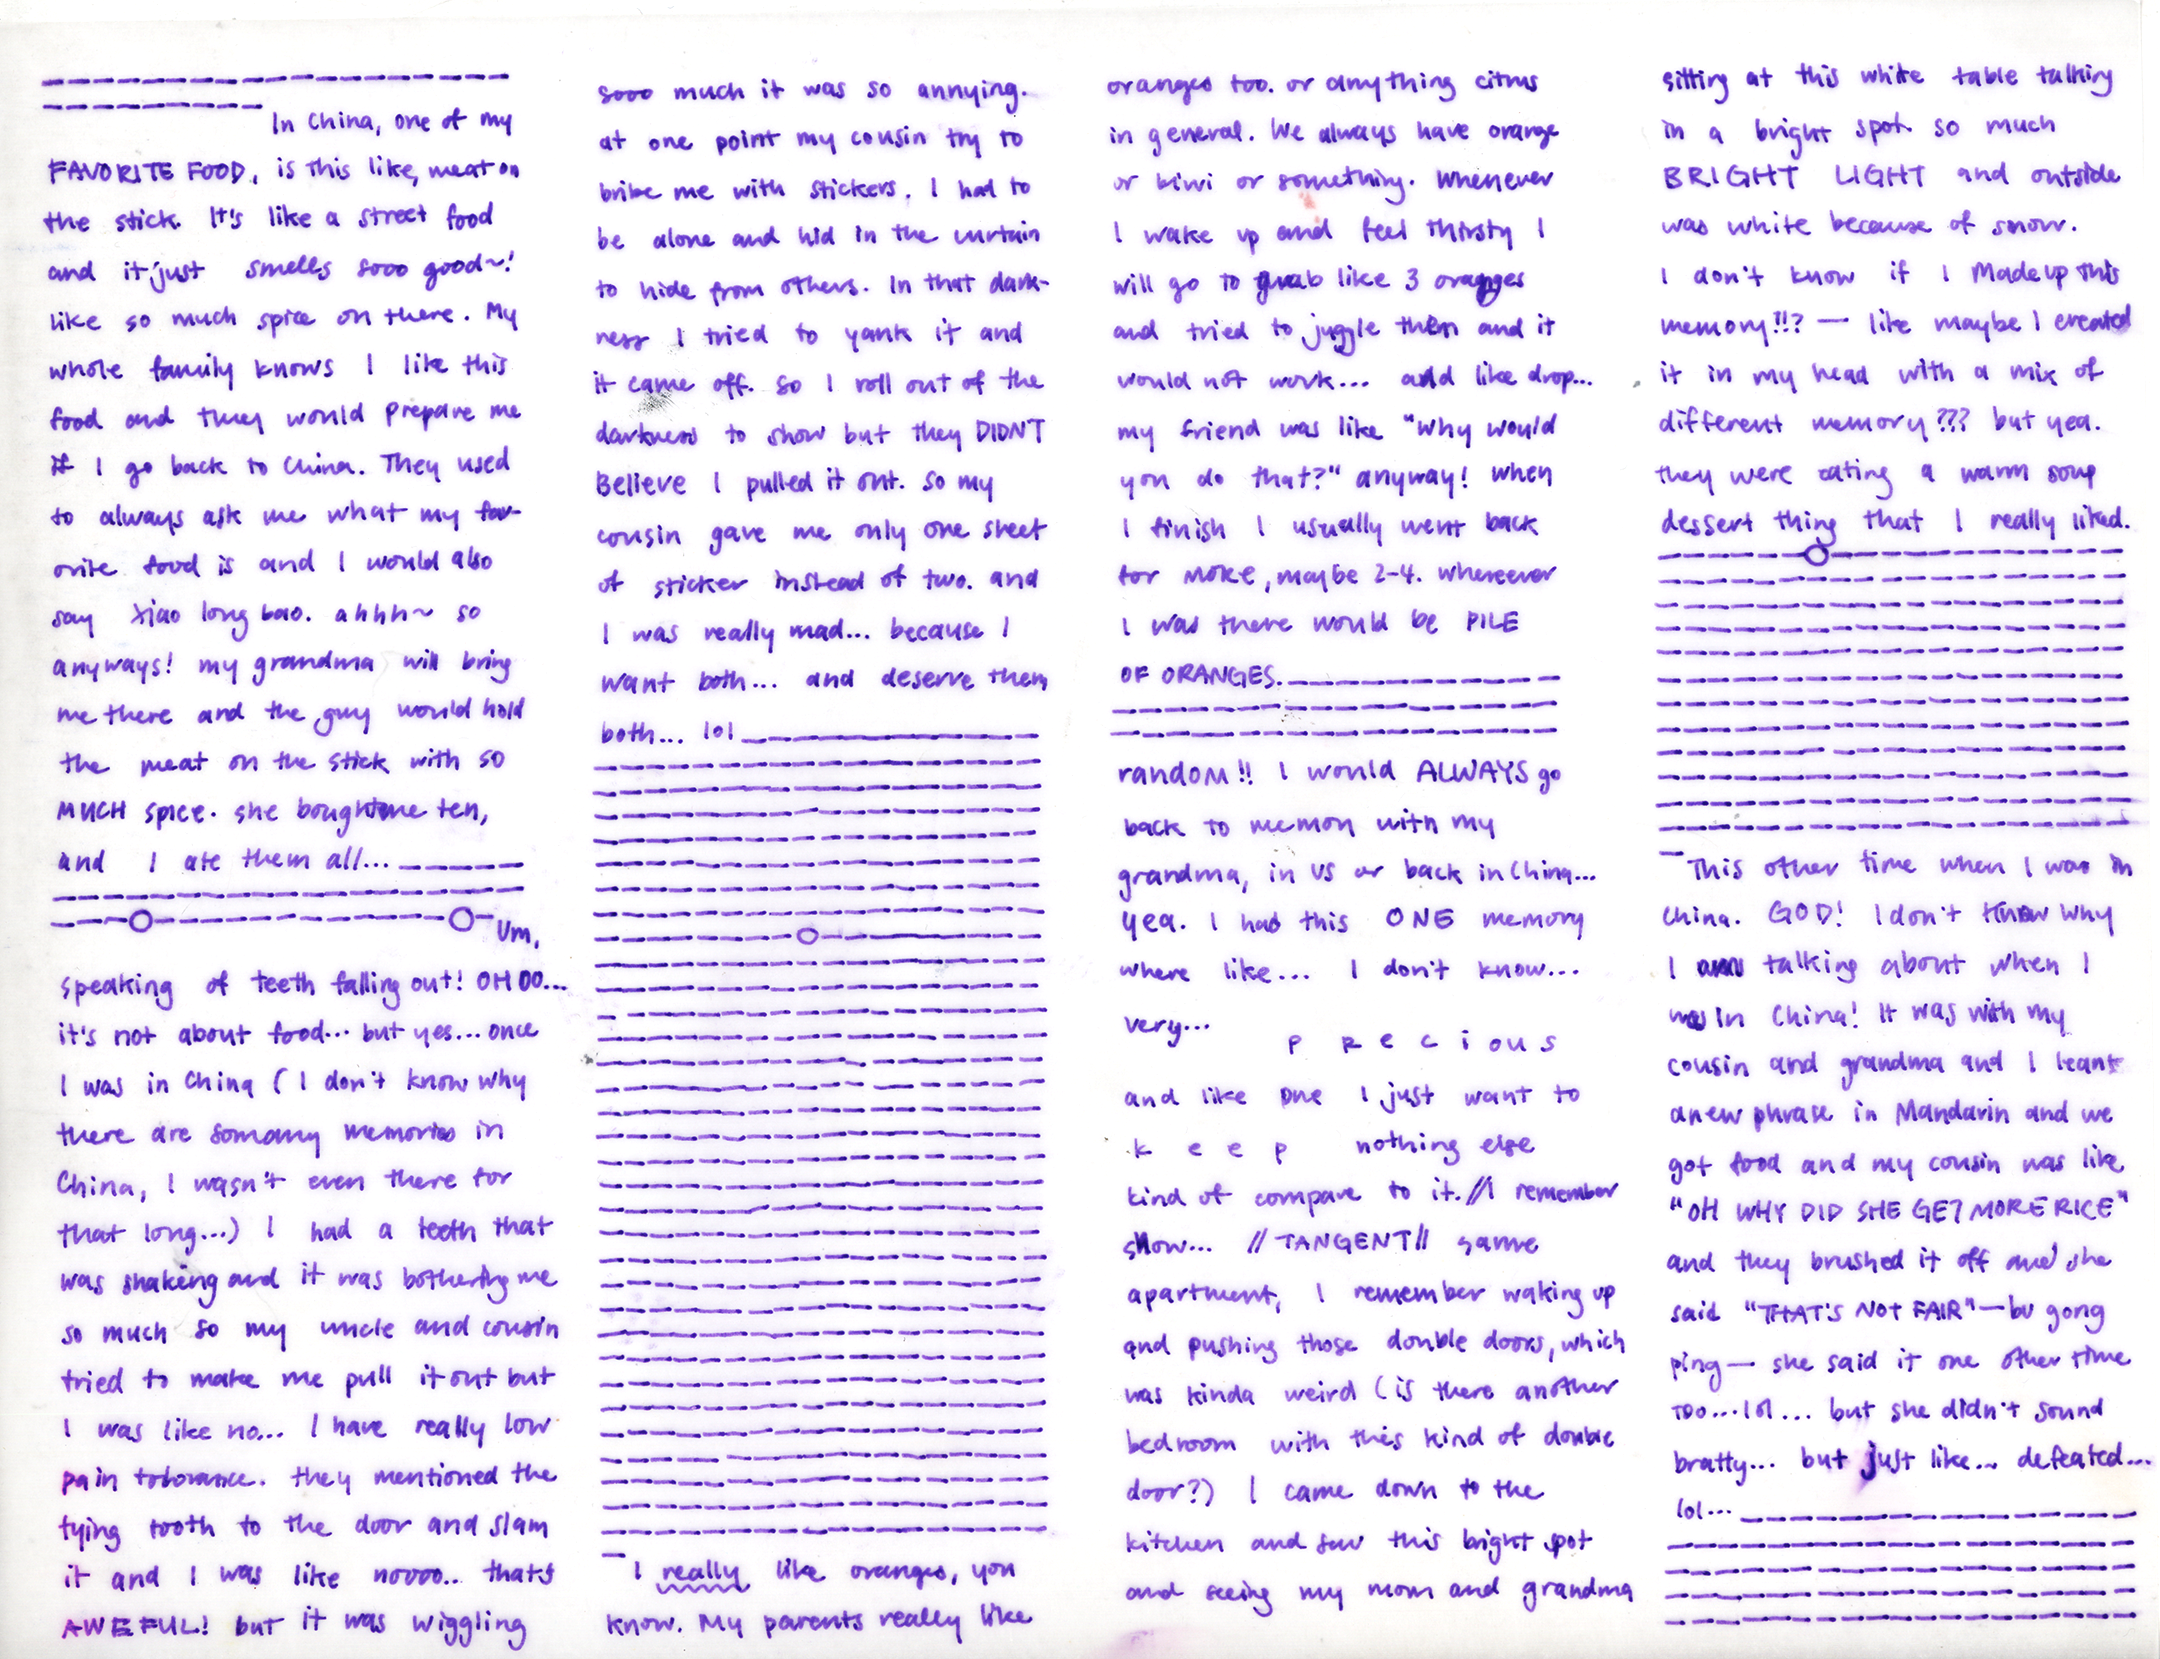 In China, one of my
FAVORITE FOOD, is this like, meat on
the stick. It's like a street food
and it just smells sooo good~!
like so much spice on there. My
whole family knows I like this
food and they would prepare me
if I go back to China. They used
to always ask me what my fav-
orite food is and I would also
say Xiao long bao. ahhh~ so
anyways! my grandma will bring
me there and the guy would hold
the meat on the stick with so
MUCH spice. she bought me ten,
and I ate them all...
Um,
speaking of teeth falling out! OH OO...
it's not about food... but yes... once
I was in China (I don't know why
there are somany memories in
China, I wasn't even there for
that long...) I had a teeth that
was shaking and it was bothering me
so much so my uncle and cousin
tried to make me pull it out but
I was like no... I have really low
pain tolerance. they mentioned the
tying tooth to the door and slam
it and I was like noooo.. thats
AWEFUL! but it was wiggling
sooo much it was so annying.
at one point my cousin try to
bribe me with stickers. I had to
be alone and hid in the curtain
to hide from others. In that dark-
ness I tried to yank it and
it came off. So I roll out of the
darkness to show but they DIDNT
Believe I pulled it out. so my
cousin gave me only one sheet
of sticker instead of two. and
I was really mad... because I
want both... and deserve them
both... lol
I really like oranges, you
know. My parents really like
oranges too. or anything citrus
in general. We always have orange
or kiwi or something. Whenever
I wake up and feel thirsty I
will go to grab like 3 oranges
and tried to juggle them and it
would not work... and like drop...
my friend was like "why would
you do that?" anyway! when
I finish I usually went back
for more, maybe 2-4. whereever
I was there would be PILE
OF ORANGES.
random!! I would ALWAYS go
back to memory with my
grandma, in US or back in China...
yea. I had this ONE memory
where like... I don't know...
very...
p r e c i o u s
and like one I just want to
k e e p nothing else
kind of compare to it. //I remember
snow... //TANGENT// same
apartment, I remember waking up
and pushing those double doors, which
was kinda weird (is there another
bedroom with this kind of double
door?) I came down to the
kitchen and saw this bright spot
and seeing my mom and grandma
sitting at this white table talking
in a bright spot so much
BRIGHT LIGHT and outside
was white because of snow.
I don't know if I made up this
memory!!? — like maybe I created
it in my head with a mix of
different memory??? but yea.
they were eating a warm soup
dessert thing that I really liked.
This other time when I was in
China. GOD! I don't know why
I am talking about when I
was in China! It was with my
cousin and grandma and I learnt
a new phrase in Mandarin and we
got food and my cousin was like
"OH WHY DID SHE GET MORE RICE"
and they brushed it off and she
said "THAT'S NOT FAIR" — bu gong
ping — she said it one other time
too... lol... but she didn't sound
bratty... but just like... defeated...
lol...